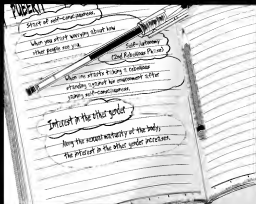 PUBERTY
Start of self-consciousness.
When you start worrying about how
other people see you.
Self-Autonomy
(2nd Rebellious Phase)
When one starts taking a rebellious
standing against the environment after
gaining self-consciousness.
Interest in the other gender
Along the sexual maturity of the body,
the interest in the other gender increases.